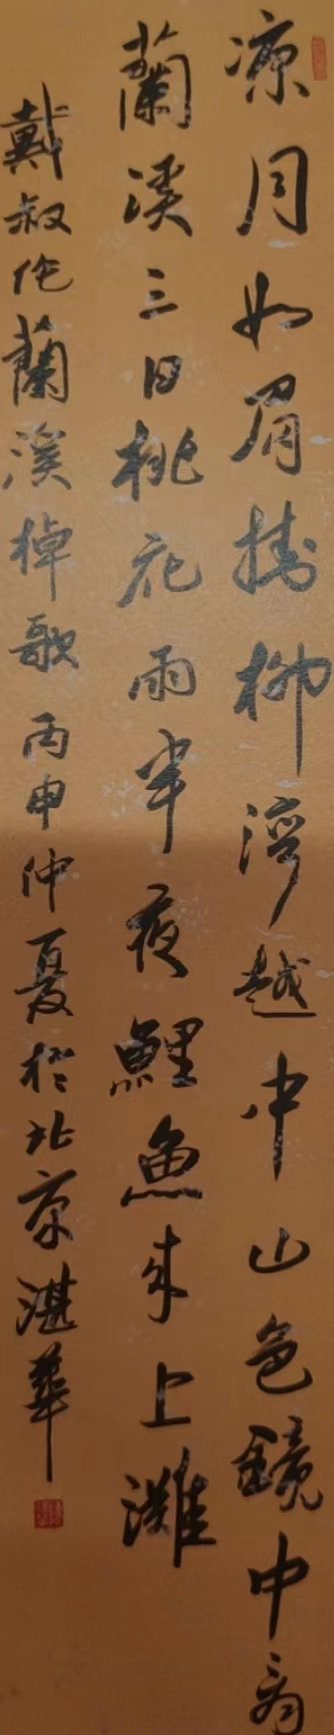 凉月如眉掛柳灣越中山色鏡中看
蘭溪三日桃花雨半夜鯉魚來上灘
戴叔伦蘭溪棹歌丙申仲夏於北京湛華